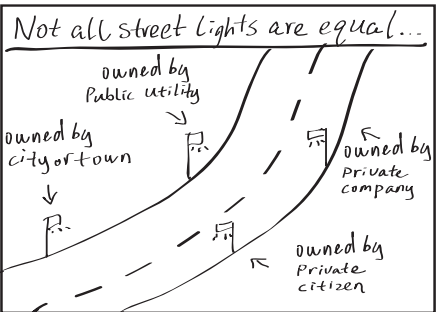 Not all street lights are equal...
owned by
Public Utility
owned by
city or town
owned by
Private
company
owned by
Private
citizen